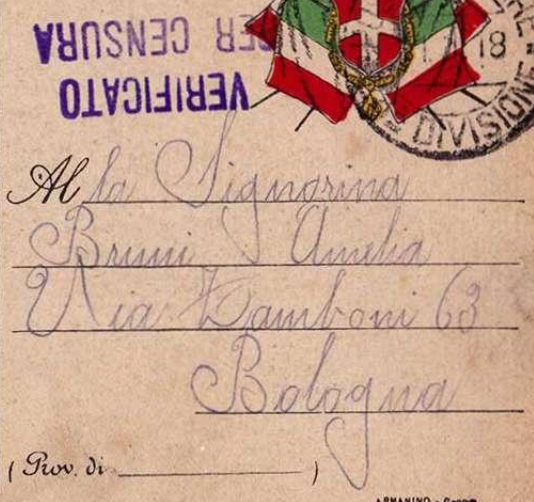 VERIFICATO
PER CENSURA
18
DIVISIONE
Alla Signorina
Bruni Amelia
Via Zamboni 63
Bologna
(Prov. di )
ARMANINO - Genova